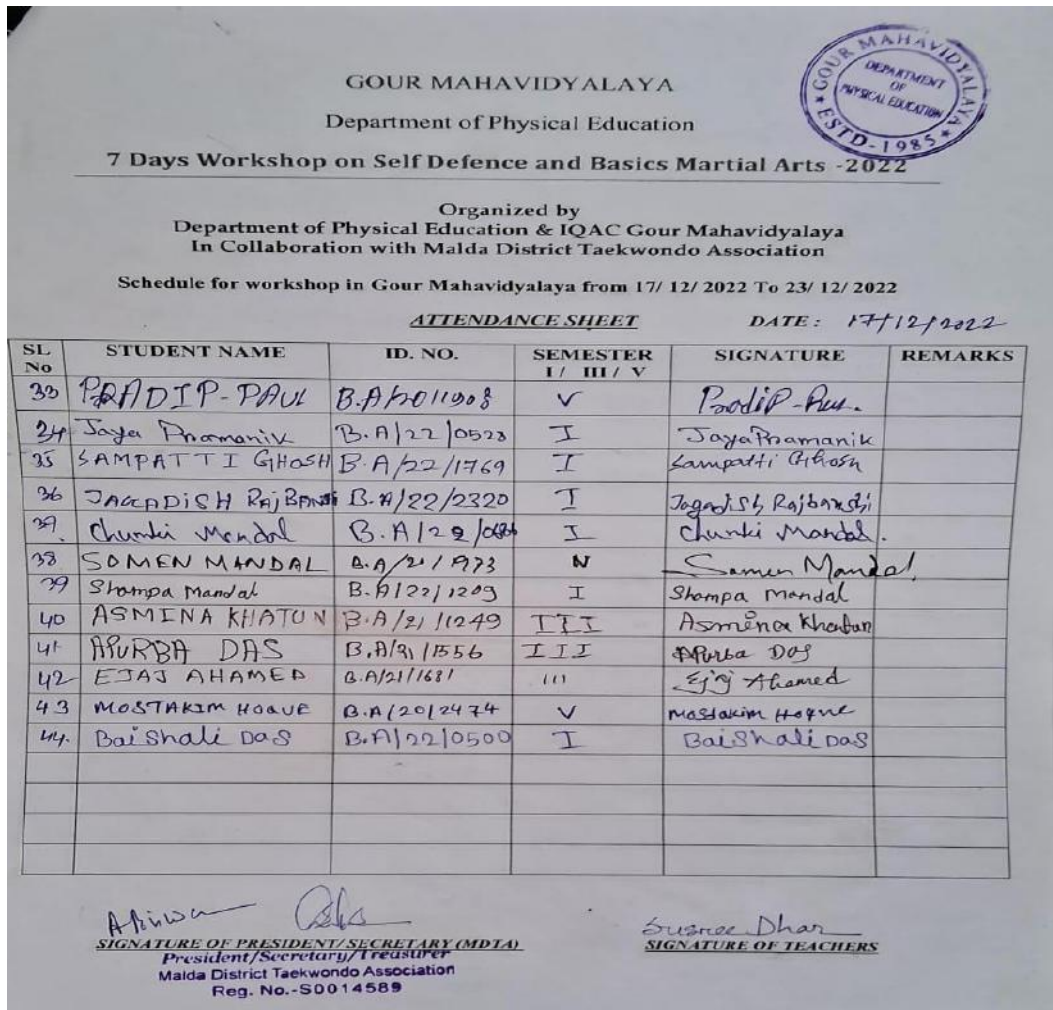 GOUR MAHAVIDYALAYA
DEPARTMENT
OF
PHYSICAL EDUCATION
ESTD-1985
GOUR MAHAVIDYALAYA
Department of Physical Education
7 Days Workshop on Self Defence and Basics Martial Arts -2022
Organized by
Department of Physical Education & IQAC Gour Mahavidyalaya
In Collaboration with Malda District Taekwondo Association
Schedule for workshop in Gour Mahavidyalaya from 17/ 12/ 2022 To 23/ 12/ 2022
ATTENDANCE SHEET DATE : 17/12/2022
SL No STUDENT NAME ID. NO. SEMESTER I / III / V SIGNATURE REMARKS
33 PRADIP-PAUL V
34 Jaya Pramanik B.A/22/0523 I Jaya Pramanik
35 SAMPATTI GHOSH B.A/22/1769 I Sampatti Ghosh
36 B.A/22/2320 I Jagadish Rajbanshi
37. Mandal I Mandal.
38 SOMEN MANDAL Somen Mandal
39 Shampa Mandal B.A/22/1209 I Shampa Mandal
40 ASMINA KHATUN B.A/21/1249 III Asmina Khatun
41 APURBA DAS III Apurba Das
42 EJAJ AHAMED B.A/21/1681 III Ahamed
43 MOSTAKIM HOQUE B.A/20/2474 V Mostakim Hoque
44. Baishali Das B.A/22/0500 I Baishali Das
Dhar
SIGNATURE OF PRESIDENT/SECRETARY (MDTA) SIGNATURE OF TEACHERS
President/Secretary/Treasurer
Malda District Taekwondo Association
Reg. No.-S0014589